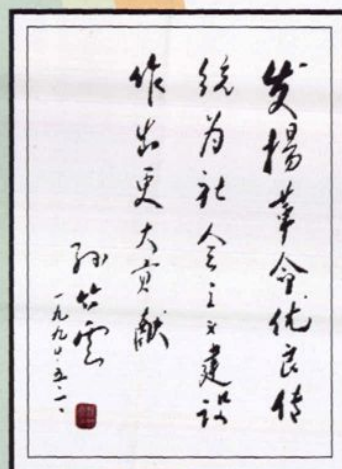 发扬革命优良传
统为社会主义建设
作出更大贡献
孙竹云
一九九〇·五·一·